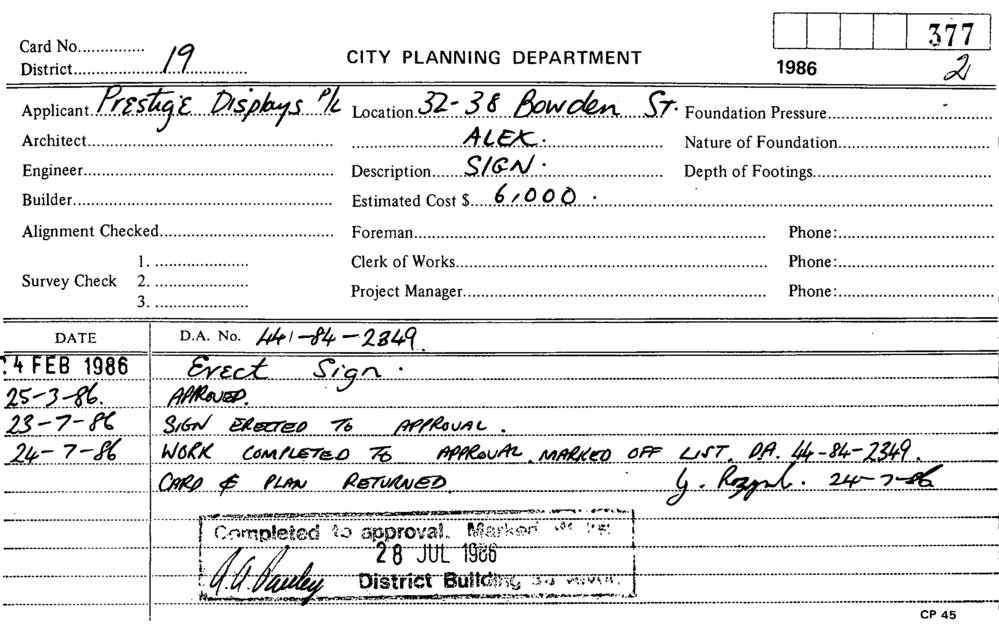 Card No...............
377
District 19
CITY PLANNING DEPARTMENT
1986 2
Applicant Prestige Displays P/L Location 32-38 Bowden St. Foundation Pressure
Architect ALEX. Nature of Foundation
Engineer Description SIGN. Depth of Footings
Builder Estimated Cost $ 6,000.
Alignment Checked Foreman Phone:
1. Clerk of Works Phone:
Survey Check 2.
Project Manager Phone:
3.
DATE D.A. No. 441-84-2349.
4 FEB 1986 Erect Sign.
25-3-86. APPROVED.
23-7-86 SIGN ERECTED TO APPROVAL.
24-7-86 WORK COMPLETED TO APPROVAL. MARKED OFF LIST. DA. 44-84-2349.
CARD & PLAN RETURNED. 24-7-86
Completed to approval. Marked off list
28 JUL 1986
District Building
CP 45